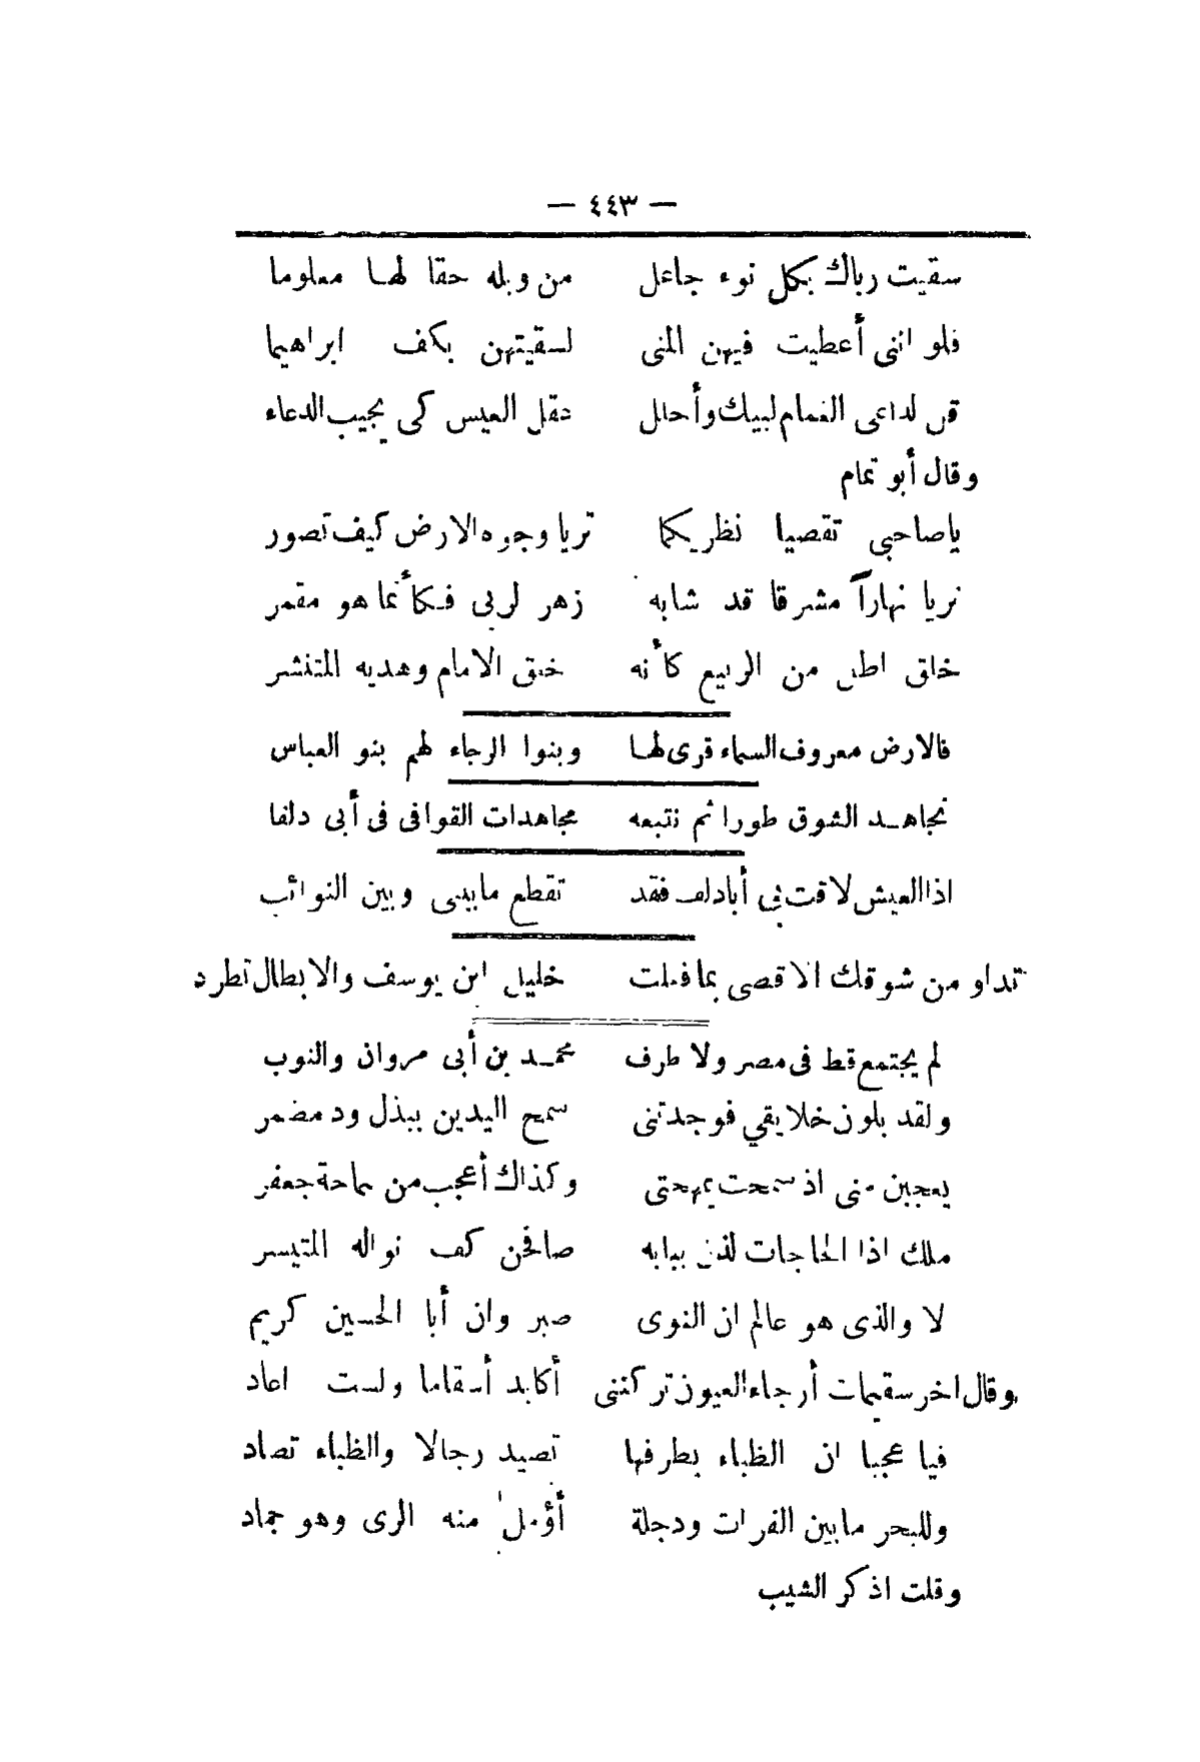 — ٤٤٣ —
سقيت رباك بكل نوء جاعل من وبله حقا لهـا معلوما
فلو اننى أعطيت فيهن المنى لسقيتهن بكف ابراهيما
قل لداعى الغمام لبيك وأحلل عقل العيس كى يجيب الدعاء
وقال أبو تمام
ياصاحبى تقصيا نظريكما تريا وجوه الارض كيف تصور
تريا نهاراً مشرقا قد شابه زهر لربى فـكأنما هو مقمر
خلق اطل من الربيع كأنه خلق الامام وهديه المتنشر
فالارض معروف السماء قرى لهـا وبنوا الرجاء لهم بنو العباس
نجاهـد الشوق طورا ثم نتبعه مجاهدات القوافى فى أبى دلفا
اذا العيش لاقت بى أبادلف فقد تقطع مابينى وبين النوائب
تداو من شوقك الاقصى بما فعلت خليل ابن يوسف والابطال تطرد
لم يجتمع قط فى مصر ولا طرف محمـد بن أبى مروان والنوب
ولقد بلون خلايقي فوجدتنى سمح اليدين ببذل ود مضمر
يعجبن منى اذ سمحت بمهجتى وكذاك أعجب من سماحة جعفر
ملك اذا الحاجات لذن ببابه صافحن كف نواله المتيسر
لا والذى هو عالم ان النوى صبر وان أبا الحسين كريم
وقال اخر سقيمات أرجاء العيون تركننى أكابد أسقاما ولست اعاد
فيا عجبا ان الظباء بطرفها تصيد رجالا والظباء تصاد
وللبحر مابين الفرات ودجلة أؤمل منه الرى وهو جماد
وقلت اذكر الشيب